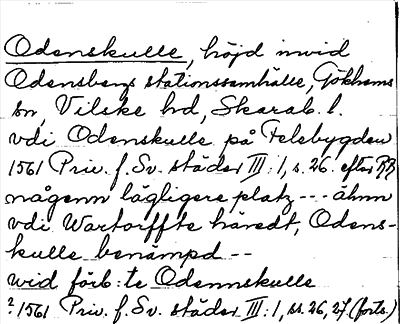 Odenskulle, höjd invid
Odensbergs stationssamhälle, Gökhems
sn, Vilske hd, Skarab. l.
vdi Odenskulle på Felebygden
1561 Priv. f. Sv. städer III: 1, s. 26. efter RR
någenn lägligere platz --- ähnn
vdi Wartoriffte häredt, Odens-
kulle benämpd --
wid förb:te Odennskulle
? 1561 Priv. f. Sv. städer III: 1, ss. 26, 27 (forts.)